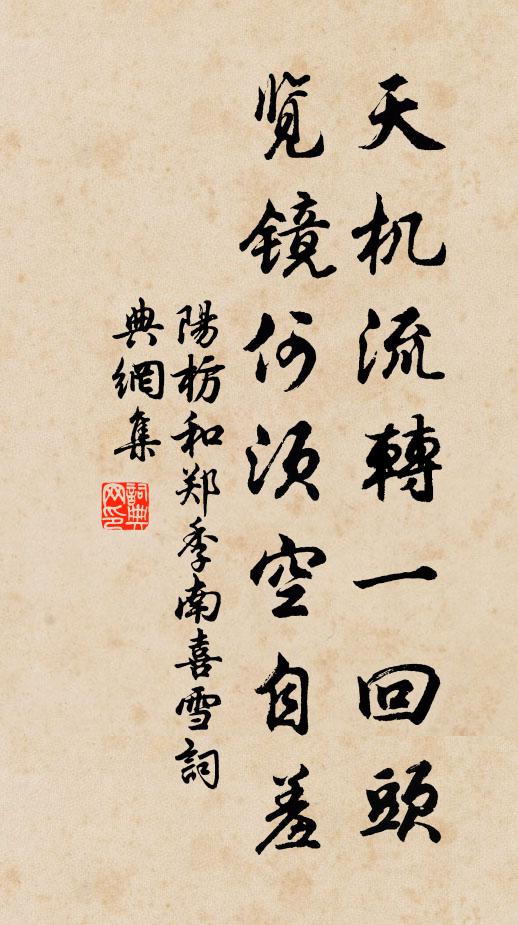 天机流轉一回頭
览镜何须空自羞
陽枋和郑季南喜雪詞
典網集
詞典网印